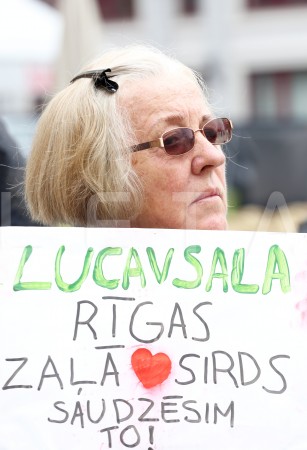 LUCAVSALA
RĪGAS
ZAĻĀ ❤ SIRDS
SAUDZĒSIM
TO!
LETA